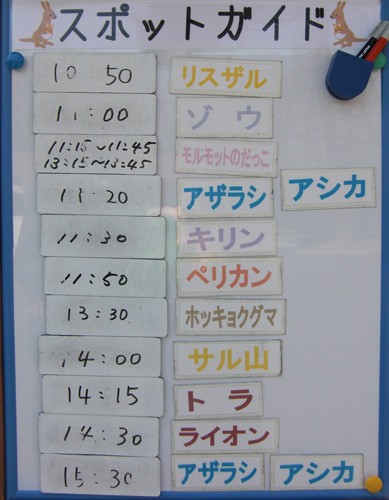 スポットガイド
10 50 リスザル
11:00 ゾウ
11:15~11:45
13:15~13:45 モルモットのだっこ
11:20 アザラシ アシカ
11:30 キリン
11:50 ペリカン
13:30 ホッキョクグマ
14:00 サル山
14:15 トラ
14:30 ライオン
15:30 アザラシ アシカ